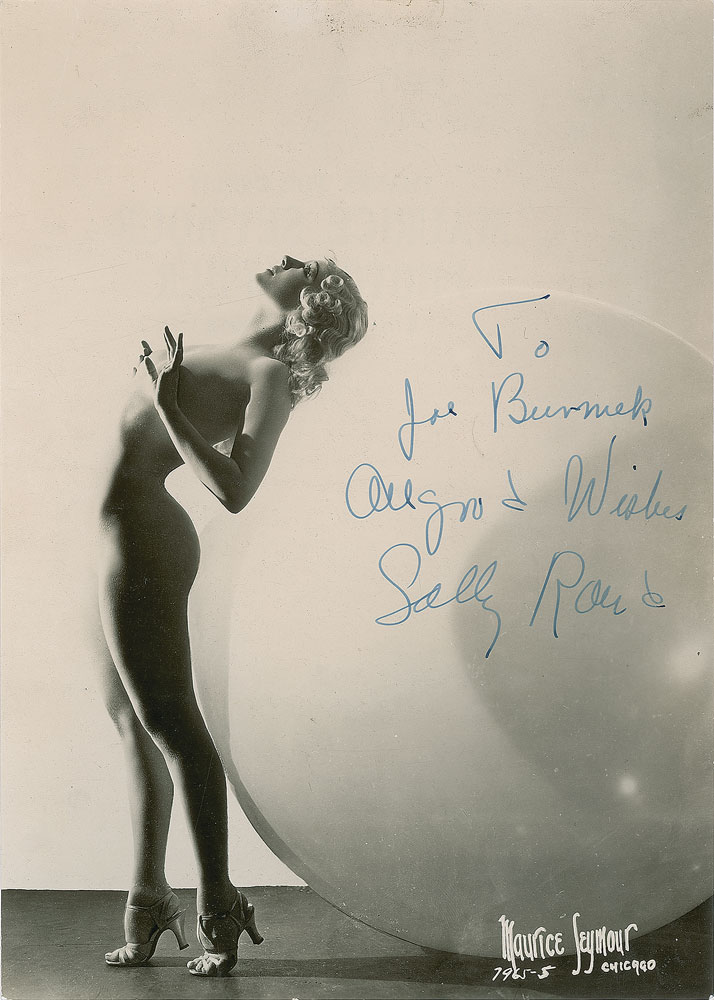 To
Joe Burmek
All good Wishes
Sally Rand
Maurice Seymour
7965-5 CHICAGO